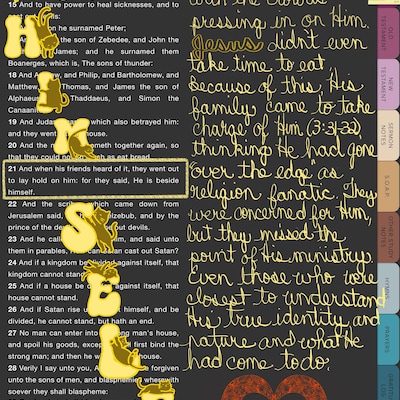 15 And to have power to heal sicknesses, and to
he surnamed Peter;
the son of Zebedee, and John the
James; and he surnamed them
Boanerges, which is, The sons of thunder:
18 And and Philip, and Bartholomew, and
Matthew, Thomas, and James the son of
Thaddaeus, and Simon the
19 And which also betrayed him:
and they went house.
20 And the together again, so
that they could as eat bread.
21 And when his friends heard of it, they went out
to lay hold on him: for they said, He is beside
himself.
22 And the which came down from
Jerusalem said, and by the
prince of the devils.
23 And he and said unto
them in parables, cast out Satan?
24 And if a kingdom against itself, that
kingdom cannot
25 And if a house against itself, that
house cannot stand.
26 And if Satan rise himself, and be
divided, he cannot stand, but hath an end.
27 No man can enter into man's house,
and spoil his goods, first bind the
strong man; and then he house.
28 Verily I say unto you, forgiven
unto the sons of men, and wherewith
soever they shall blaspheme:
pressing in on Him.
Jesus didn't even
take time to eat
because of this, His
family came to take
charge of Him (3:31-32),
thinking He had gone
"over the edge" as
religion fanatic. They
were concerned for Him,
but they missed the
point of His ministry.
Even those who were
closest to understand
His true identity, and
nature and what He
had come to do.
OLD TESTAMENT
NEW TESTAMENT
SERMON NOTES
S.O.A.P
OTHER STUDY NOTES
HYMNS
PRAYERS